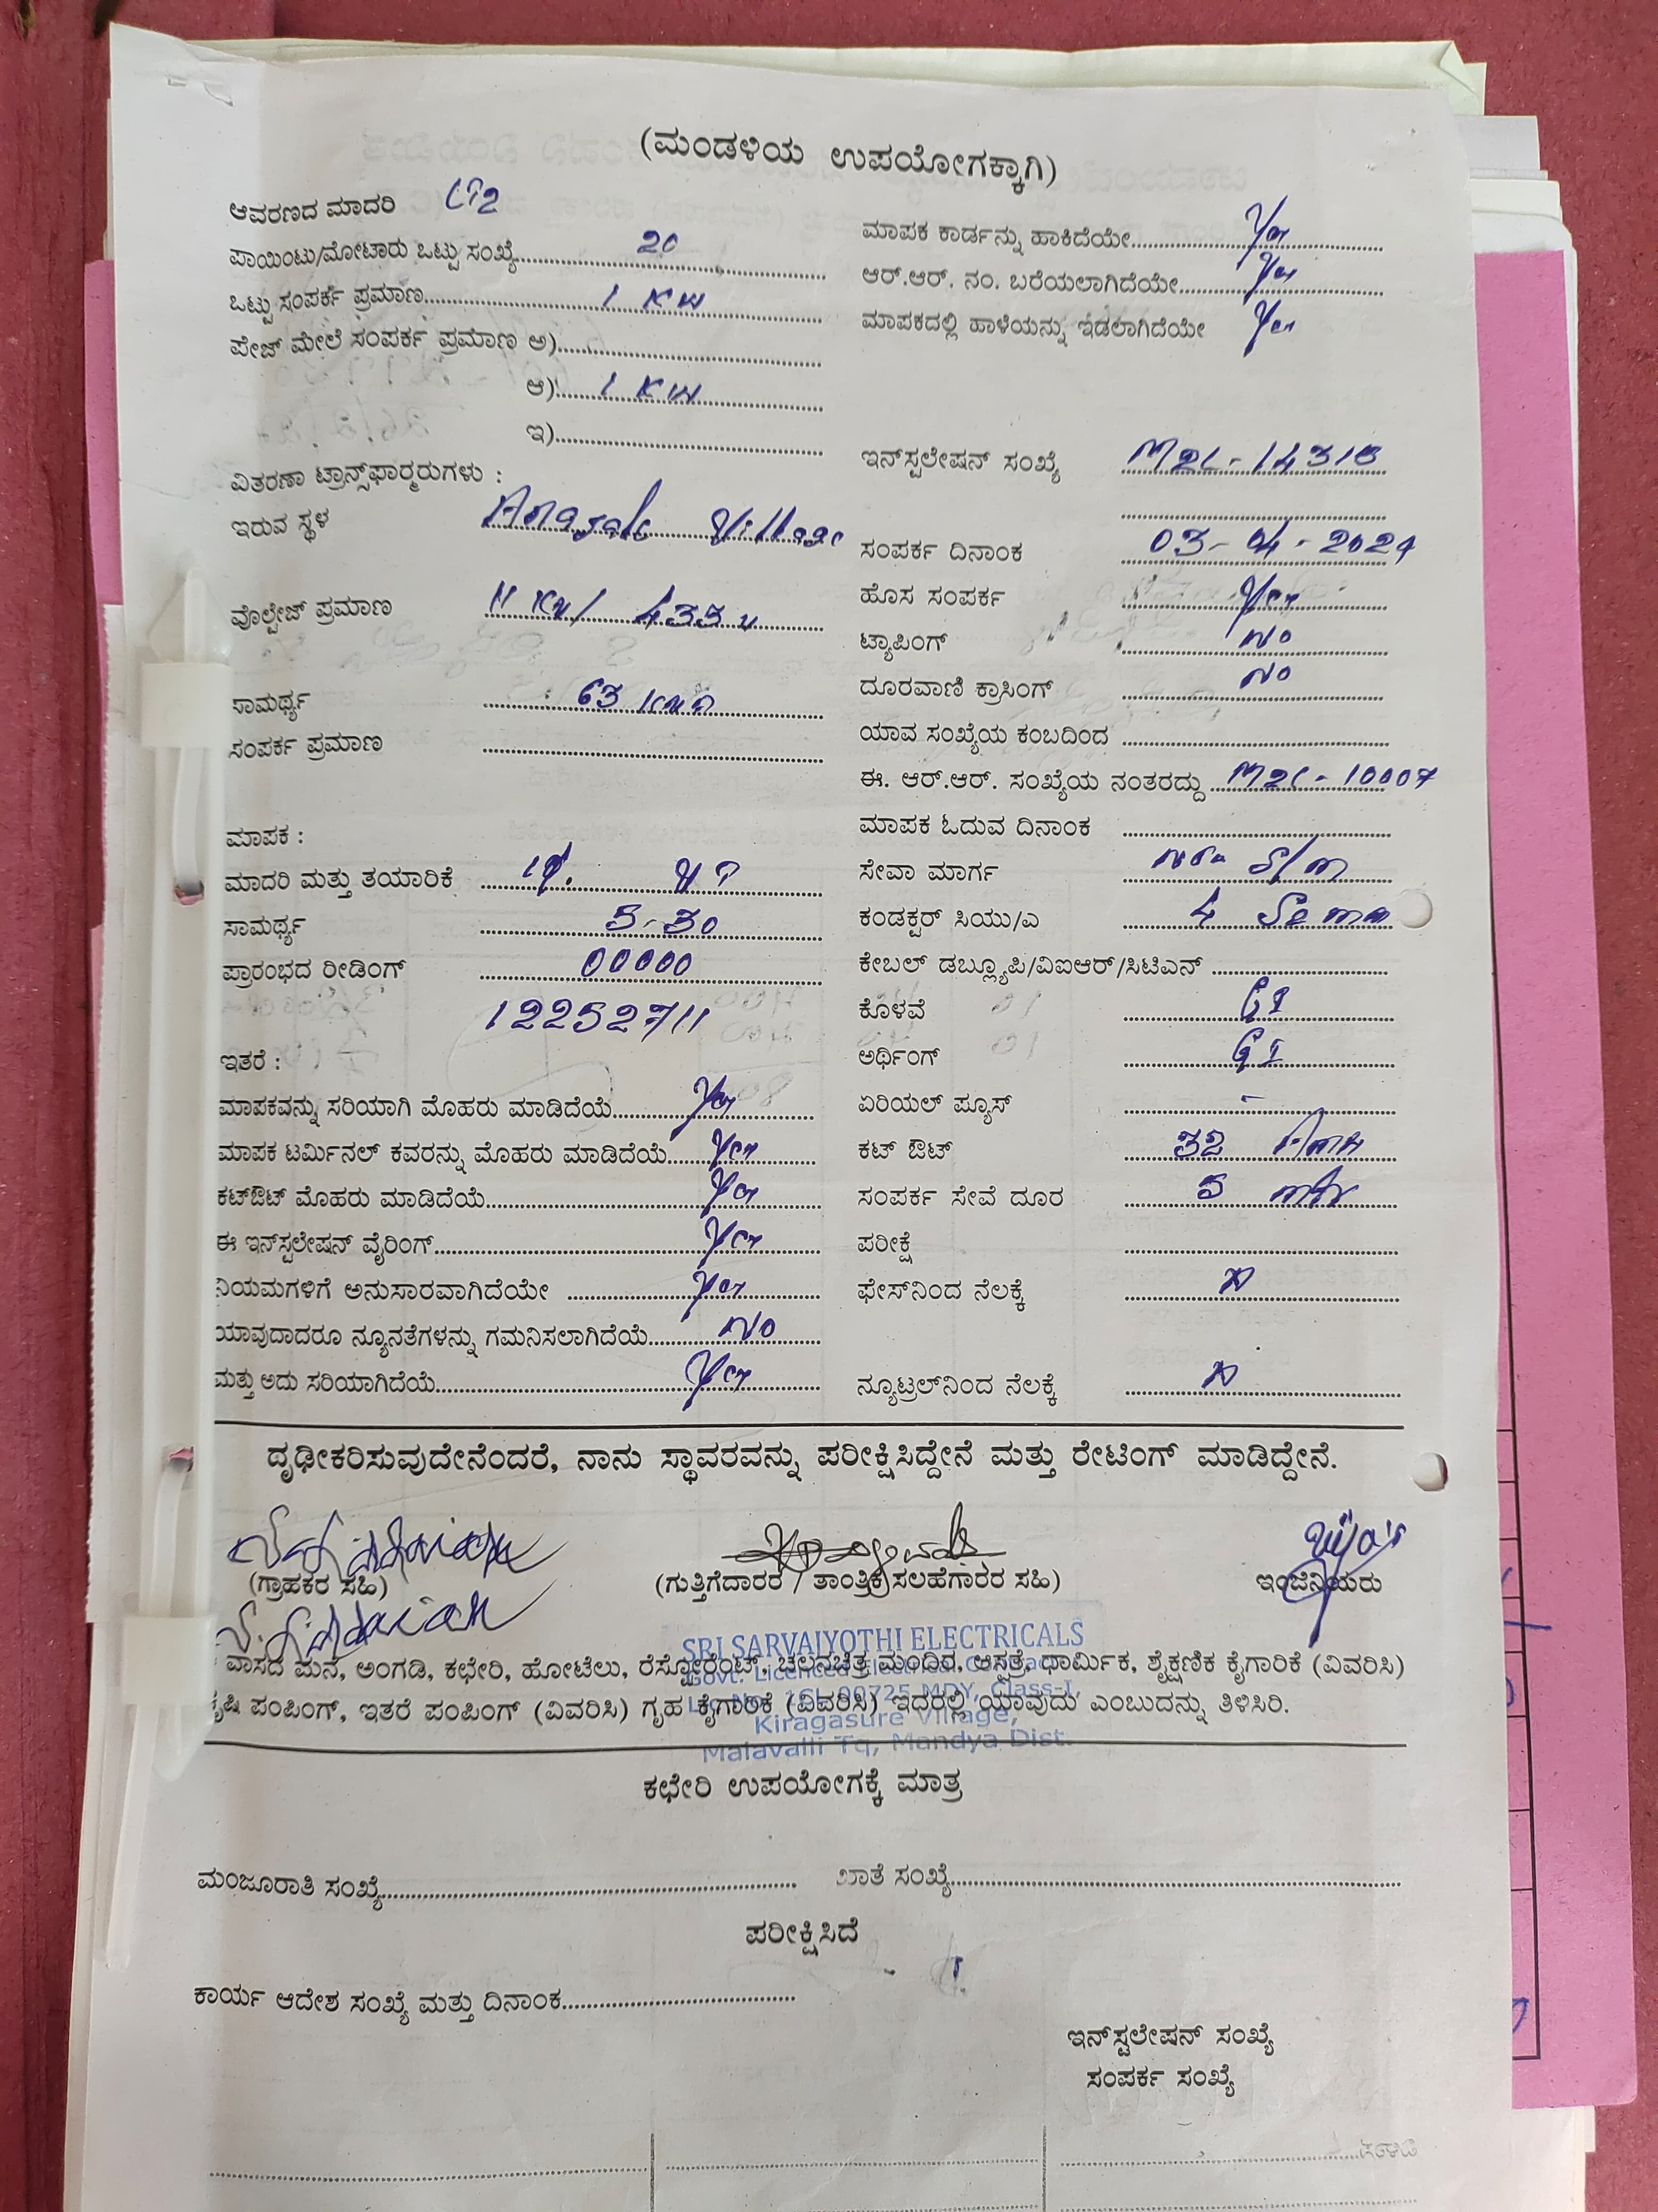 (ಮಂಡಳಿಯ ಉಪಯೋಗಕ್ಕಾಗಿ)
ಆವರಣದ ಮಾದರಿ LT2
ಪಾಯಿಂಟು/ಮೋಟಾರು ಒಟ್ಟು ಸಂಖ್ಯೆ 20
ಒಟ್ಟು ಸಂಪರ್ಕ ಪ್ರಮಾಣ 1 KW
ಪೇಜ್ ಮೇಲೆ ಸಂಪರ್ಕ ಪ್ರಮಾಣ ಅ)
ಆ) 1 KW
ಇ)
ವಿತರಣಾ ಟ್ರಾನ್ಸ್‌ಫಾರ್‍ಮರುಗಳು :
ಇರುವ ಸ್ಥಳ Village
ವೊಲ್ಟೇಜ್ ಪ್ರಮಾಣ 11 KV/ 433 v
ಸಾಮರ್ಥ್ಯ 63 KVA
ಸಂಪರ್ಕ ಪ್ರಮಾಣ
ಮಾಪಕ :
ಮಾದರಿ ಮತ್ತು ತಯಾರಿಕೆ
ಸಾಮರ್ಥ್ಯ 5-30
ಪ್ರಾರಂಭದ ರೀಡಿಂಗ್ 00000
12252711
ಇತರೆ :
ಮಾಪಕವನ್ನು ಸರಿಯಾಗಿ ಮೊಹರು ಮಾಡಿದೆಯೆ Yes
ಮಾಪಕ ಟರ್ಮಿನಲ್ ಕವರನ್ನು ಮೊಹರು ಮಾಡಿದೆಯೆ Yes
ಕಟ್‌ಔಟ್ ಮೊಹರು ಮಾಡಿದೆಯೆ Yes
ಈ ಇನ್‌ಸ್ಟಲೇಷನ್ ವೈರಿಂಗ್ Yes
ನಿಯಮಗಳಿಗೆ ಅನುಸಾರವಾಗಿದೆಯೇ Yes
ಯಾವುದಾದರೂ ನ್ಯೂನತೆಗಳನ್ನು ಗಮನಿಸಲಾಗಿದೆಯೆ No
ಮತ್ತು ಅದು ಸರಿಯಾಗಿದೆಯೆ Yes
ಮಾಪಕ ಕಾರ್ಡನ್ನು ಹಾಕಿದೆಯೇ Yes
ಆರ್.ಆರ್. ನಂ. ಬರೆಯಲಾಗಿದೆಯೇ Yes
ಮಾಪಕದಲ್ಲಿ ಹಾಳೆಯನ್ನು ಇಡಲಾಗಿದೆಯೇ Yes
ಇನ್‌ಸ್ಟಲೇಷನ್ ಸಂಖ್ಯೆ M2L-14318
ಸಂಪರ್ಕ ದಿನಾಂಕ 03-04-2024
ಹೊಸ ಸಂಪರ್ಕ Yes
ಟ್ಯಾಪಿಂಗ್ No
ದೂರವಾಣಿ ಕ್ರಾಸಿಂಗ್ No
ಯಾವ ಸಂಖ್ಯೆಯ ಕಂಬದಿಂದ
ಈ. ಆರ್.ಆರ್. ಸಂಖ್ಯೆಯ ನಂತರದ್ದು M2L-10007
ಮಾಪಕ ಓದುವ ದಿನಾಂಕ
ಸೇವಾ ಮಾರ್ಗ New S/m
ಕಂಡಕ್ಟರ್ ಸಿಯು/ಎ 4
ಕೇಬಲ್ ಡಬ್ಲ್ಯೂಪಿ/ವಿಐಆರ್/ಸಿಟಿಎನ್
ಕೊಳವೆ GI
ಅರ್ಥಿಂಗ್ GI
ಏರಿಯಲ್ ಪ್ಯೂಸ್ -
ಕಟ್ ಔಟ್ 32
ಸಂಪರ್ಕ ಸೇವೆ ದೂರ 5 mtr
ಪರೀಕ್ಷೆ
ಫೇಸ್‌ನಿಂದ ನೆಲಕ್ಕೆ
ನ್ಯೂಟ್ರಲ್‌ನಿಂದ ನೆಲಕ್ಕೆ
ದೃಢೀಕರಿಸುವುದೇನೆಂದರೆ, ನಾನು ಸ್ಥಾವರವನ್ನು ಪರೀಕ್ಷಿಸಿದ್ದೇನೆ ಮತ್ತು ರೇಟಿಂಗ್ ಮಾಡಿದ್ದೇನೆ.
(ಗ್ರಾಹಕರ ಸಹಿ) (ಗುತ್ತಿಗೆದಾರರ / ತಾಂತ್ರಿಕ ಸಲಹೆಗಾರರ ಸಹಿ) ಇಂಜಿನಿಯರು
SRI SARVAJYOTHI ELECTRICALS
Govt. Licenced Electrical Contractor
Lic No: 1CL 00725 MDY, Class-I,
Kiragasure Village,
Malavalli Tq, Mandya Dist.
ವಾಸದ ಮನೆ, ಅಂಗಡಿ, ಕಛೇರಿ, ಹೋಟೆಲು, ರೆಸ್ಟೋರೆಂಟ್, ಚಲನಚಿತ್ರ ಮಂದಿರ, ಆಸ್ಪತ್ರೆ, ಧಾರ್ಮಿಕ, ಶೈಕ್ಷಣಿಕ ಕೈಗಾರಿಕೆ (ವಿವರಿಸಿ)
ಕೃಷಿ ಪಂಪಿಂಗ್, ಇತರೆ ಪಂಪಿಂಗ್ (ವಿವರಿಸಿ) ಗೃಹ ಕೈಗಾರಿಕೆ (ವಿವರಿಸಿ) ಇದರಲ್ಲಿ ಯಾವುದು ಎಂಬುದನ್ನು ತಿಳಿಸಿರಿ.
ಕಛೇರಿ ಉಪಯೋಗಕ್ಕೆ ಮಾತ್ರ
ಮಂಜೂರಾತಿ ಸಂಖ್ಯೆ ಖಾತೆ ಸಂಖ್ಯೆ
ಪರೀಕ್ಷಿಸಿದೆ
ಕಾರ್ಯ ಆದೇಶ ಸಂಖ್ಯೆ ಮತ್ತು ದಿನಾಂಕ
ಇನ್‌ಸ್ಟಲೇಷನ್ ಸಂಖ್ಯೆ
ಸಂಪರ್ಕ ಸಂಖ್ಯೆ